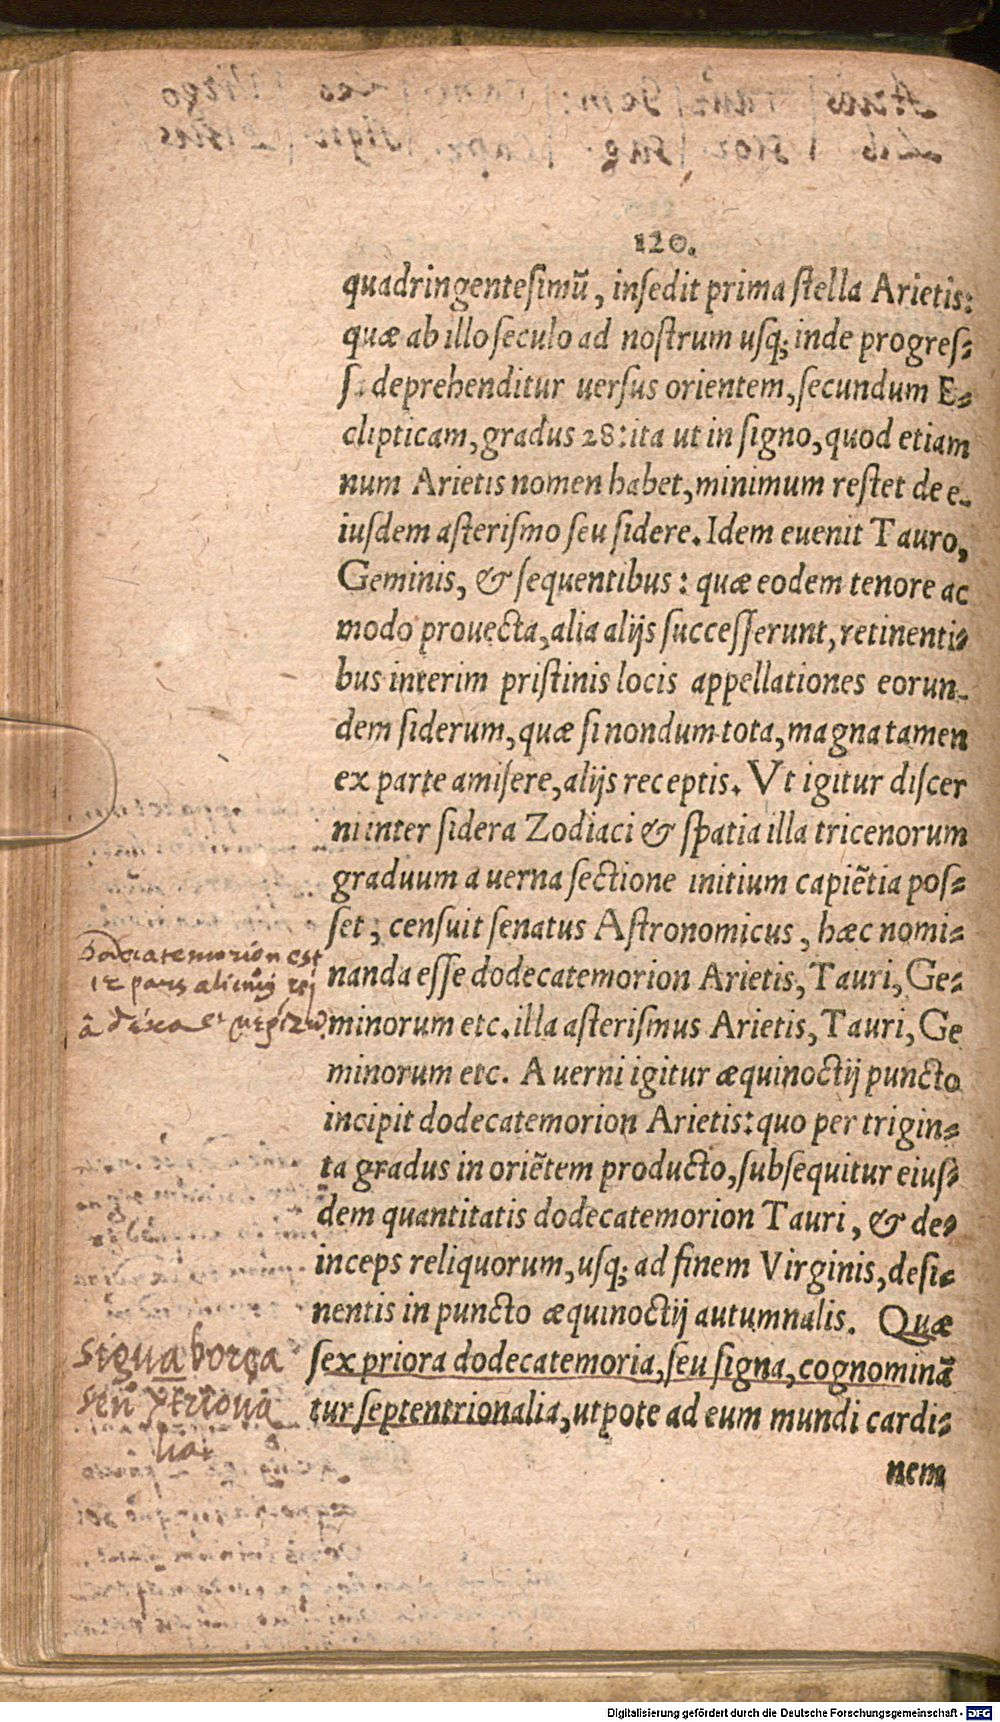 120.
quadringentesimū, insedit prima stella Arietis:
quæ ab illo seculo ad nostrum usq; inde progres-
s: deprehenditur uersus orientem, secundum E-
clipticam, gradus 28: ita ut in signo, quod etiam
num Arietis nomen habet, minimum restet de e-
iusdem asterismo seu sidere. Idem euenit Tauro,
Geminis, & sequentibus: quæ eodem tenore ac
modo prouecta, alia alijs successerunt, retinenti-
bus interim pristinis locis appellationes eorun-
dem siderum, quæ si nondum tota, magna tamen
ex parte amisere, alijs receptis. Vt igitur discer
ni inter sidera Zodiaci & spatia illa tricenorum
graduum a uerna sectione initium capiētia pos-
set; censuit senatus Astronomicus, hæc nomi-
nanda esse dodecatemorion Arietis, Tauri, Ge-
minorum etc. illa asterismus Arietis, Tauri, Ge
minorum etc. A uerni igitur æquinoctij puncto
incipit dodecatemorion Arietis: quo per trigin-
ta gradus in oriētem producto, subsequitur eius-
dem quantitatis dodecatemorion Tauri, & de-
inceps reliquorum, usq; ad finem Virginis, desi-
nentis in puncto æquinoctij autumnalis. Quæ
sex priora dodecatemoria, seu signa, cognominā
tur septentrionalia, utpote ad eum mundi cardi-
nem
Dodecatemorion est
12 pars alicuius rei
signa borea
Digitalisierung gefördert durch die Deutsche Forschungsgemeinschaft - DFG